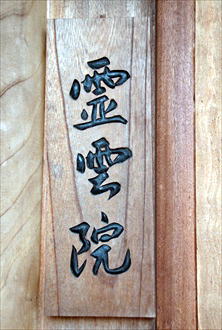 靈雲院